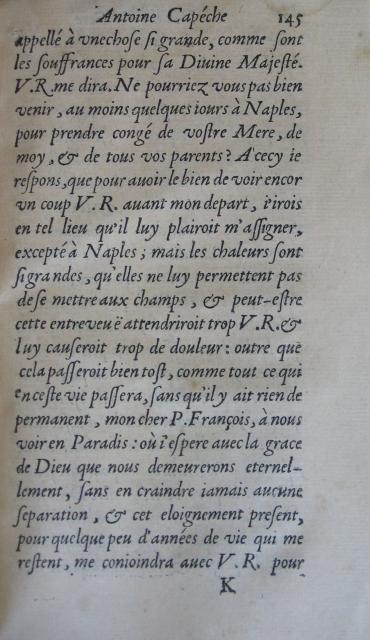 Antoine Capéche 145
appellé à vnechose si grande, comme sont
les souffrances pour sa Diuine Majesté.
V.R.me dira. Ne pourriez vous pas bien
venir, au moins quelques iours à Naples,
pour prendre congé de vostre Mere, de
moy, & de tous vos parents? A cecy ie
respons, que pour auoir le bien de voir encor
vn coup V.R. auant mon depart, i'irois
en tel lieu qu'il luy plairoit m'assigner,
excepté à Naples; mais les chaleurs sont
si grandes, qu'elles ne luy permettent pas
de se mettre aux champs, & peut-estre
cette entreveuë attendriroit trop V.R.&
luy causeroit trop de douleur: outre que
cela passeroit bien tost, comme tout ce qui
en ceste vie passera, sans qu'il y ait rien de
permanent, mon cher P.François, à nous
voir en Paradis: où i'espere auec la grace
de Dieu que nous demeurerons eternel-
lement, sans en craindre iamais aucune
separation, & cet eloignement present,
pour quelque peu d'années de vie qui me
restent, me conioindra auec V.R. pour
K